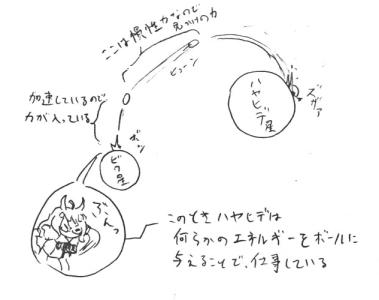 ここは慣性力なので
見かけの力
ビューン
加速しているので
力が入っている
ボッ
ビワ星
ハヤヒデ星
ズガァ
ぶんっ
このときハヤヒデは
何らかのエネルギーをボールに
与えることで、仕事している